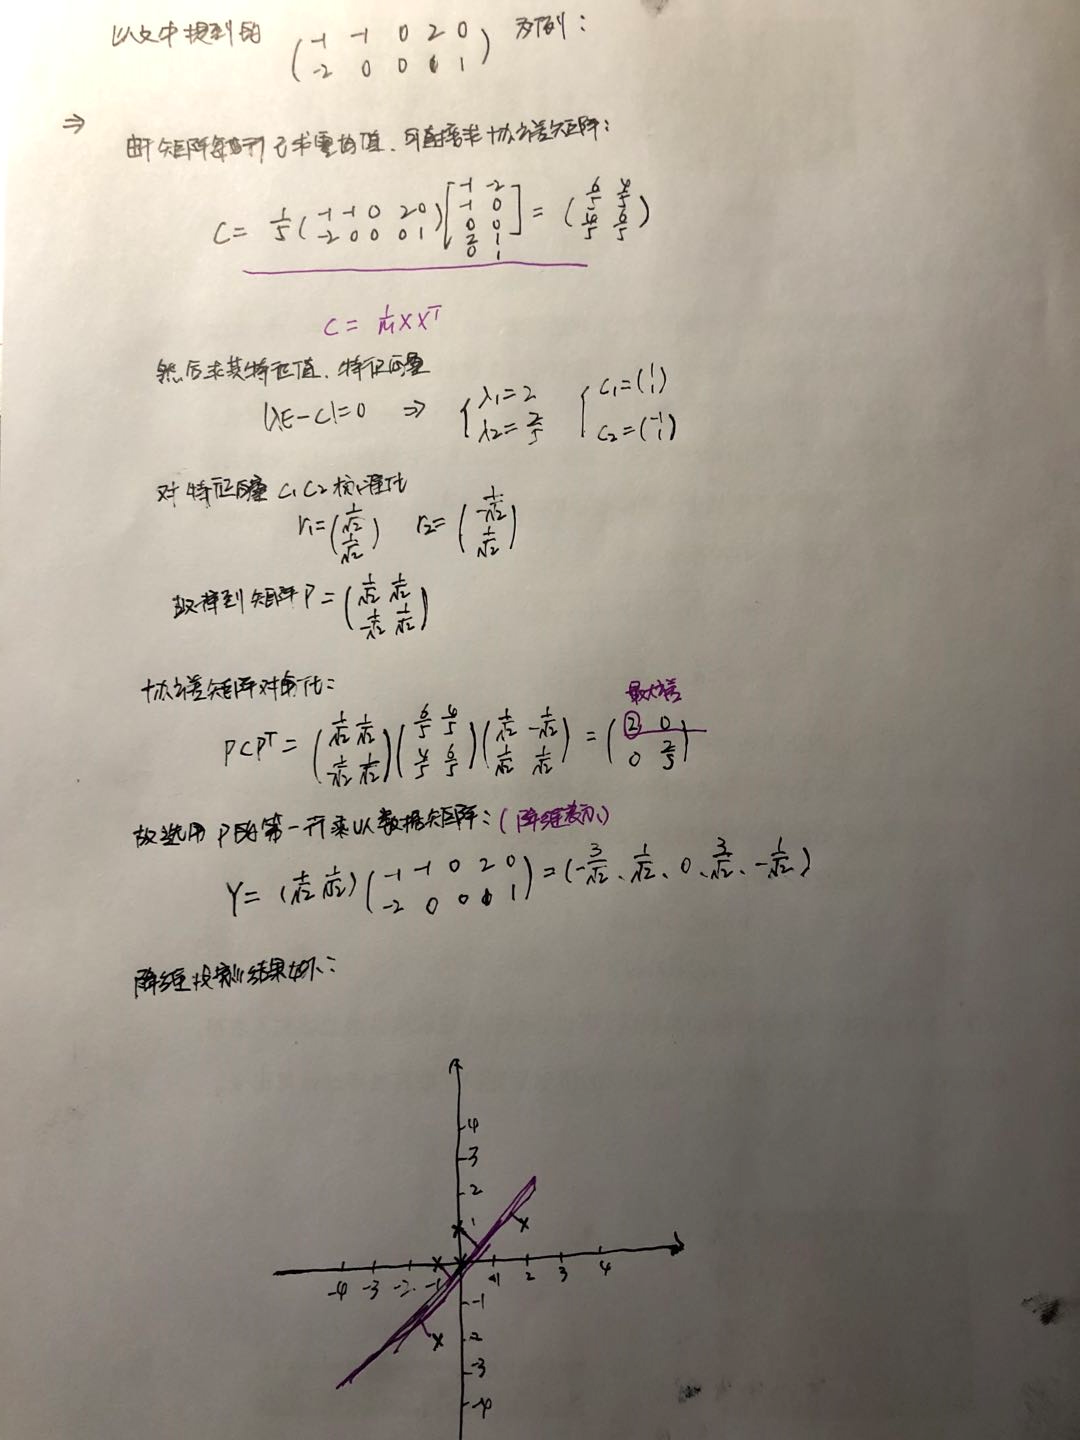 以文中提到的 (-1 -1 0 2 0
-2 0 0 1 1) 为例:
⇒
由于矩阵每行已求零均值、可直接求协方差矩阵:
C = 1/5 (-1 -1 0 2 0
-2 0 0 0 1) [-1 -2
-1 0
0 0
2 1
0 1] = (6/5 4/5
4/5 6/5)
C = 1/M XX^T
然后求其特征值、特征向量
|λE-C|=0 ⇒ {λ1=2
λ2=2/5 {C1=(1
1)
C2=(-1
1)
对特征向量 C1 C2 标准化
r1=(1/√2
1/√2) r2=(-1/√2
1/√2)
故得到矩阵P=(1/√2 1/√2
-1/√2 1/√2)
协方差矩阵对角化:
最大差
PCP^T = (1/√2 1/√2
-1/√2 1/√2)(6/5 4/5
4/5 6/5)(1/√2 -1/√2
1/√2 1/√2) = (2 0
0 2/5)
故选用 P的第一行乘以数据矩阵:(降维表示)
Y = (1/√2 1/√2)(-1 -1 0 2 0
-2 0 0 1) = (-3/√2、1/√2、0、3/√2、-1/√2)
降维投影结果如下:
4
3
2
1
-4 -3 -2 -1 1 2 3 4
-1
-2
-3
-4